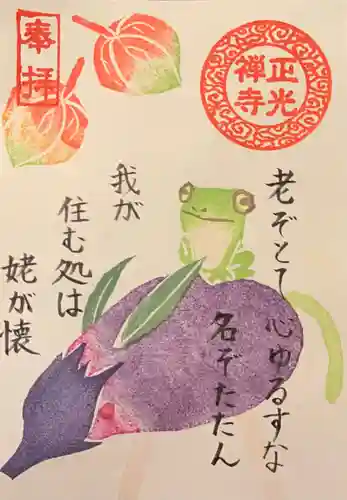 奉拝
正光
禅寺
老ぞとて心ゆるすな
名ぞたたん
我が
住む処は
姥が懐